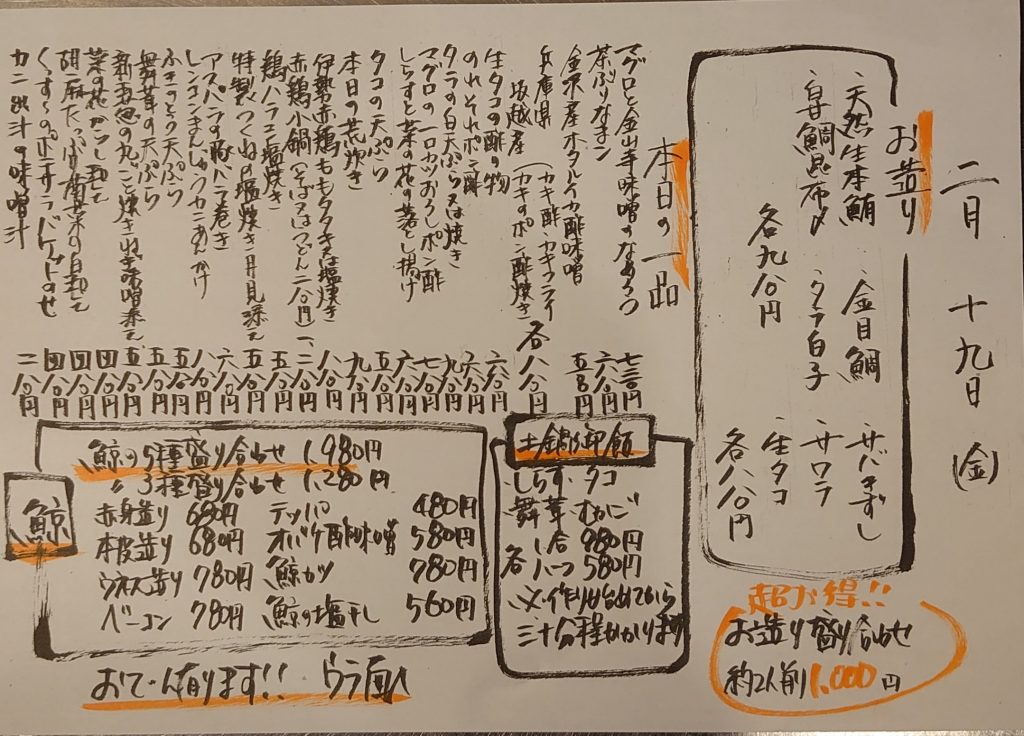 二月十九日(金)
お造り
天然生本鮪 金目鯛 サバきずし
白甘鯛昆布〆 タラ白子 サワラ
生タコ
各九八〇円
各八八〇円
超お得!!
お造り盛り合わせ
約2人前1,000円
本日の一品
マグロと金山寺味噌のなめろう 七三〇円
茶ぶりなまこ 六八〇円
金沢産ホタルイカ酢味噌 五五〇円
兵庫県坂越産(カキ酢 カキフライ カキのポン酢焼き) 各八八〇円
生タコの酢の物 六八〇円
のれそれポン酢 六八〇円
タラの白天ぷら又は焼き 九八〇円
マグロの一口カツおろしポン酢 七八〇円
しらすと菜の花の落とし揚げ 六八〇円
タコの天ぷら 五八〇円
本日の荒炊き 九八〇円
伊勢赤鶏ももタタキ又は塩焼き 八八〇円
赤鶏小鍋(そば又はうどん二八〇円) 一、二八〇円
鶏ハラミ塩焼き 五八〇円
特製つくねの塩焼き月見添え 五八〇円
アスパラの豚バラ巻き 六八〇円
レンコンまんじゅうカニあんかけ 八八〇円
ふきのとう天ぷら 五八〇円
舞茸の天ぷら 五八〇円
新玉葱の丸ごと焼き ねぎ味噌添え 五八〇円
菜の花からし和え 四八〇円
胡麻たっぷり 菊菜の白和え 四八〇円
くっすーのポテサラバゲットのせ 四八〇円
カニ出汁の味噌汁 二八〇円
土鍋御飯
しらす・タコ
舞茸・むかご
一合 980円
各ハーフ 580円
※作り始めてから
三十分程かかります
鯨
鯨の5種盛り合わせ 1,980円
〃 3種盛り合わせ 1,280円
赤身造り 680円 テッパ 480円
本皮造り 680円 オバケ酢味噌 580円
ウネス造り 780円 鯨カツ 780円
ベーコン 780円 鯨の塩干し 560円
おでん有ります!! ウラ面へ